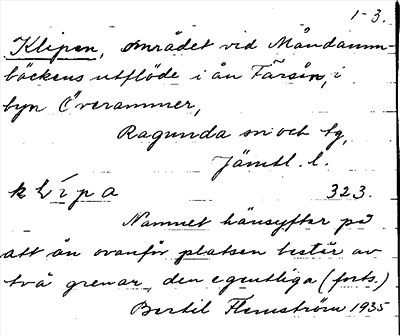 1-3.
Klipen, området vid Måndamm-
bäckens utflöde i ån Färsån, i
byn Överammer,
Ragunda sn och tg,
Jämtl. l.
klípa 323.
Namnet hänsyftar på
att ån ovanför platsen består av
två grenar, den egentliga (forts.)
Bertil Flemström 1935